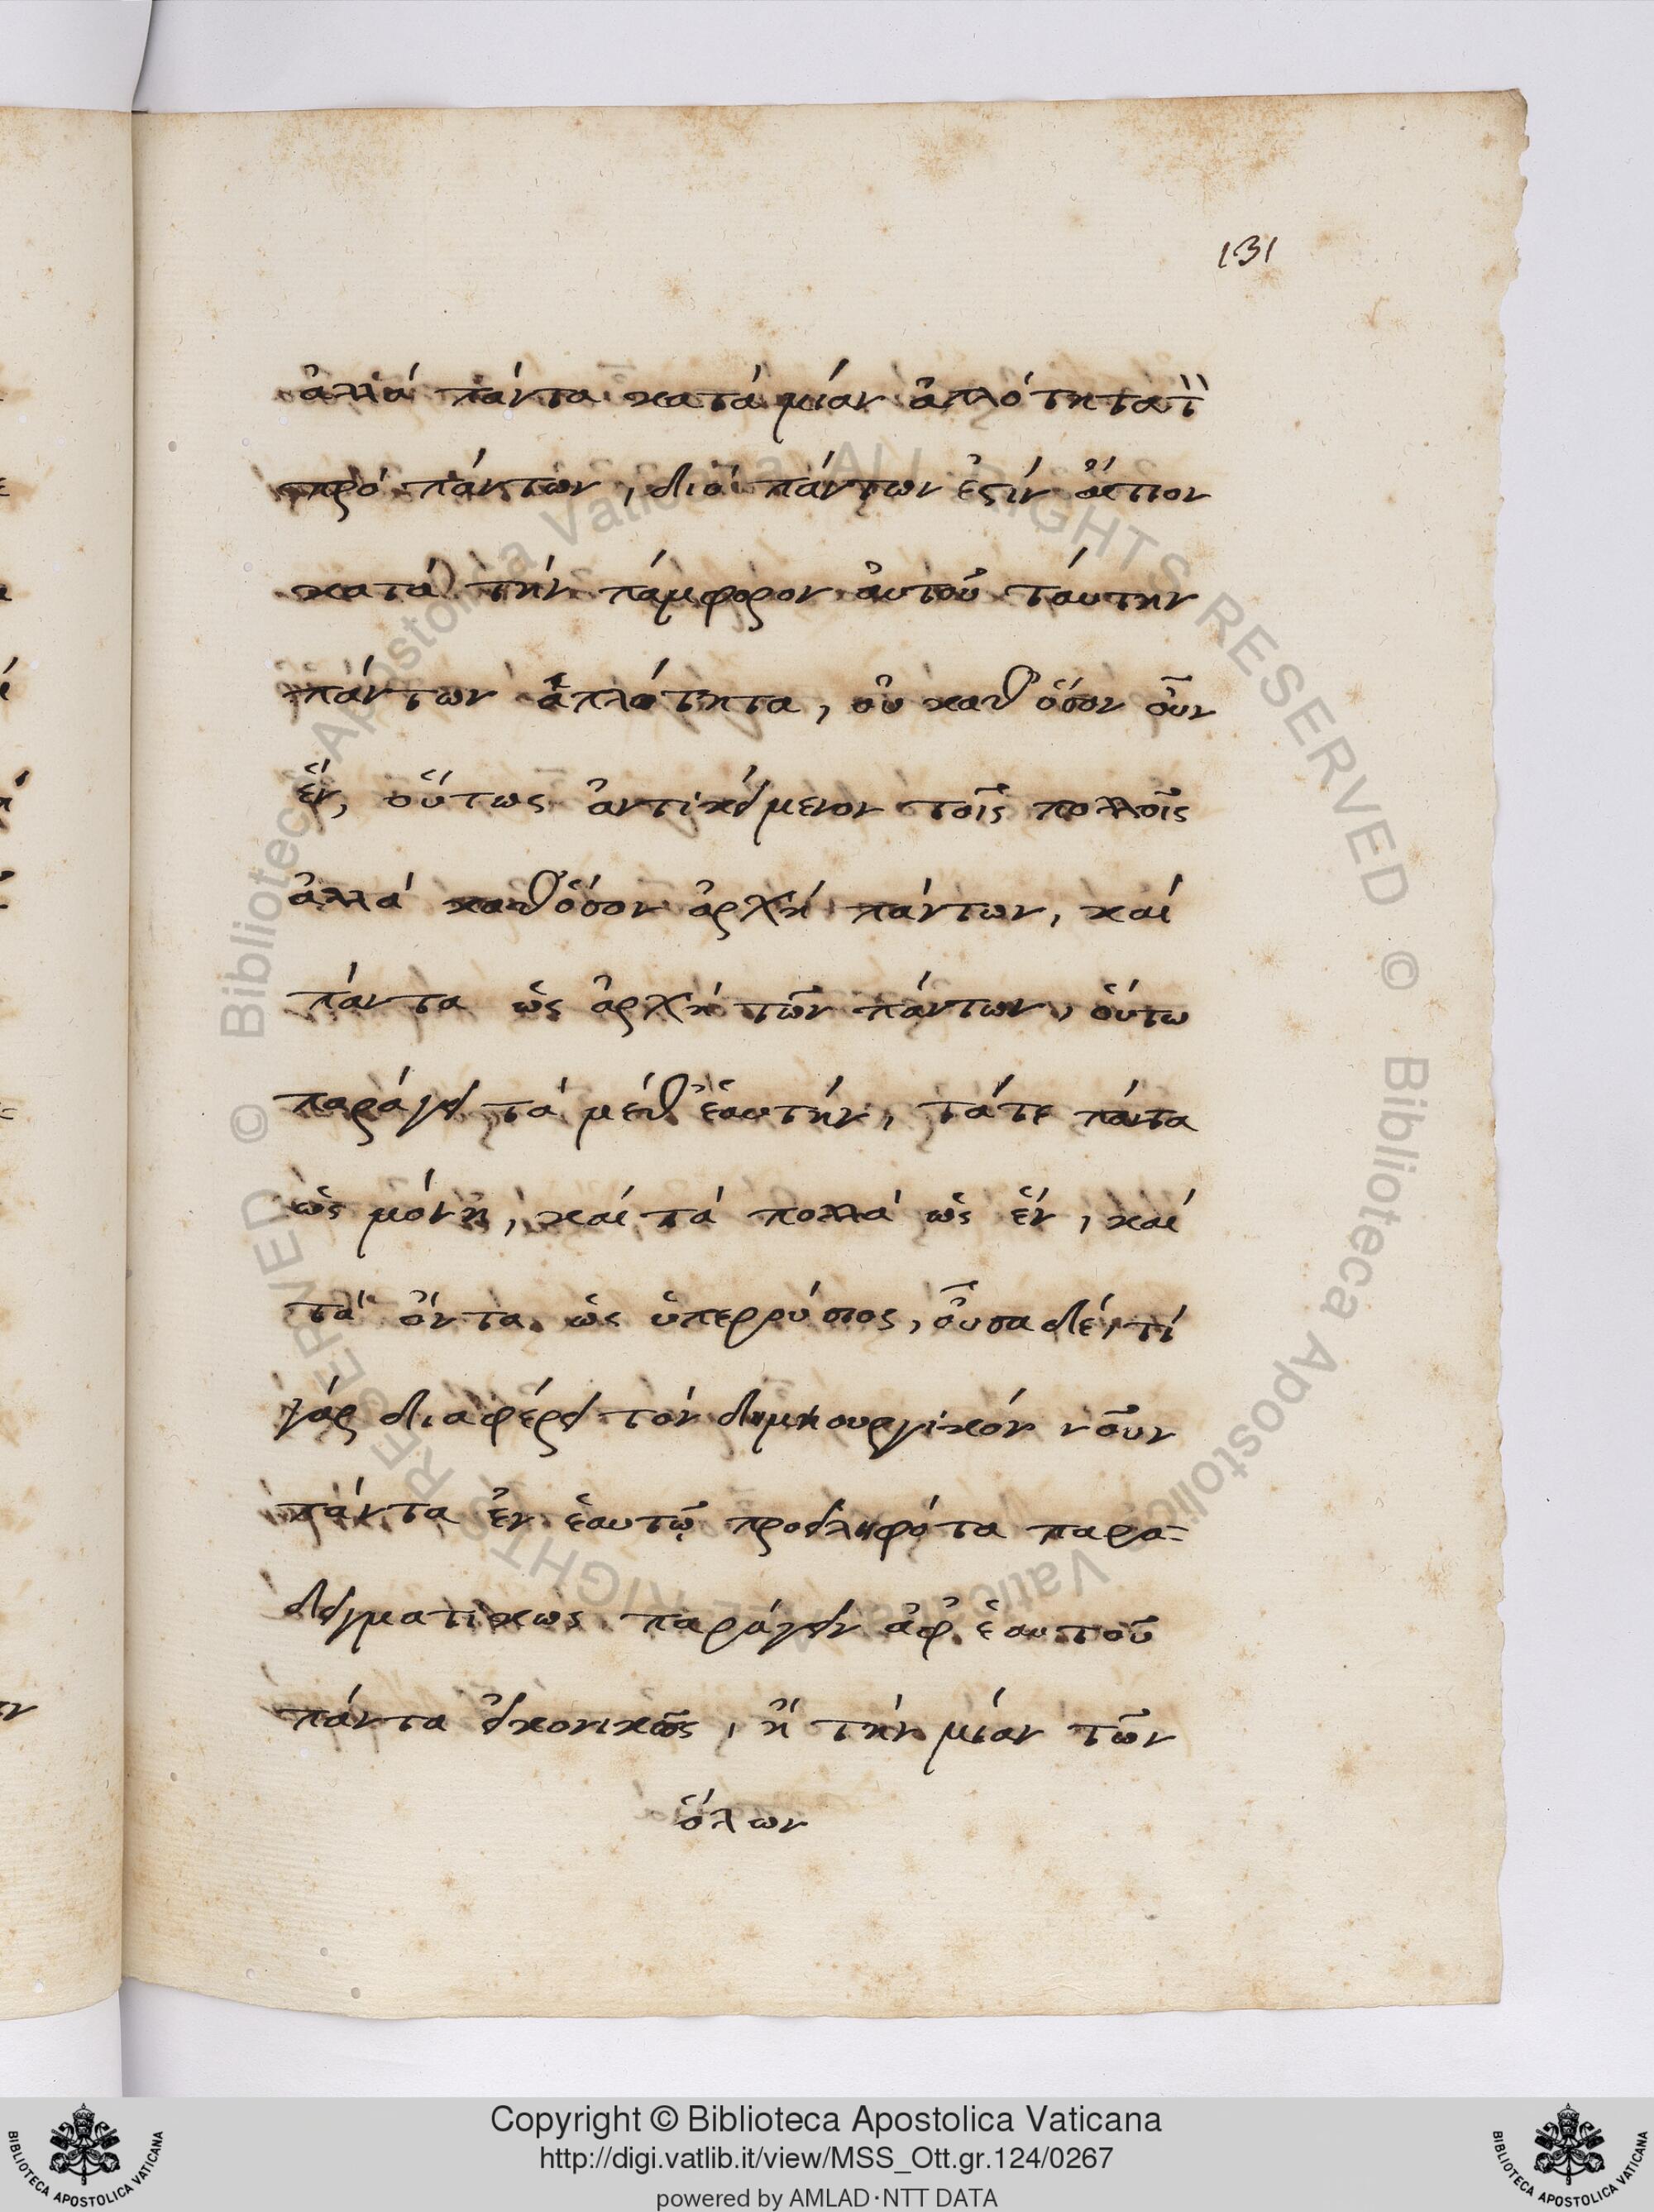 131
ἀλλά πάντα κατά μίαν ἁπλότητα τὴν
πρό πάντων, διό πάντων ἐστίν αἴτιον
κατά τήν πάμφορον αὐτοῦ τάυτην
πάντων ἁπλότητα, οὐ καθ' ὅσον οὖν
ἕν, οὕτως ἀντικείμενον τοῖς πολλοῖς
ἀλλά καθ' ὅσον ἀρχή πάντων, καί
πάντα ὡς ἀρχή τῶν πάντων, ὁύτω
παράγει τά μέθ' ἑαυτήν, τάτε πάντα
ὡς μόνη, καί τά πολλά ὡς ἕν, καί
τά ὄντα ὡς ὑπερούσιος, οὖσα δέ, τί
γάρ διαφέρει τόν δημιουργικόν νοῦν
πάντα ἐν ἑαυτῷ προειληφότα παρα-
δειγματικως παράγειν ἀφ' ἑαυτοῦ
πάντα εἰκονικῶς, ἤ τήν μίαν τῶν
ὅλων
© Biblioteca Apostolica Vaticana ALL RIGHTS RESERVED © Biblioteca Apostolica Vaticana ALL RIGHTS RESERVED
Copyright © Biblioteca Apostolica Vaticana
http://digi.vatlib.it/view/MSS_Ott.gr.124/0267
powered by AMLAD·NTT DATA
BIBLIOTECA APOSTOLICA VATICANA
BIBLIOTECA APOSTOLICA VATICANA